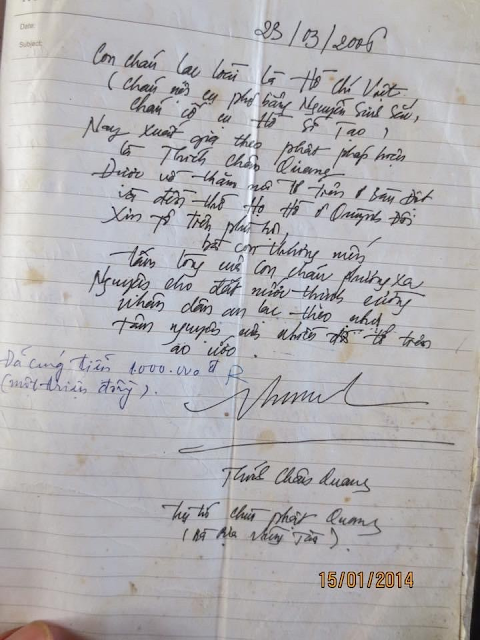 Date:
Subject
23/03/2006
Con cháu lạc loài là Hồ Chí Việt
(cháu nội cụ phó bảng Nguyễn Sinh Sắc,
cháu cố cụ Hồ Sĩ Tạo)
Nay xuất gia theo phật pháp hiệu
là Thích Chân Quang
Được về thăm mồ tổ trên ở Bàu Đột
và đền thờ Họ Hồ ở Quỳnh Đôi
Xin tổ tiên phù hộ,
bắt con thương mến
tấm lòng của con cháu phương xa
Nguyện cho đất nước thịnh cường
nhân dân an lạc theo như
tâm nguyện của nhiều đời tổ tiên
ao ước.
Đã cúng tiền 1.000.000đ
(một triệu đồng).
Thích Chân Quang
Trụ trì chùa phật Quang
(Bà Rịa Vũng Tàu).
15/01/2014